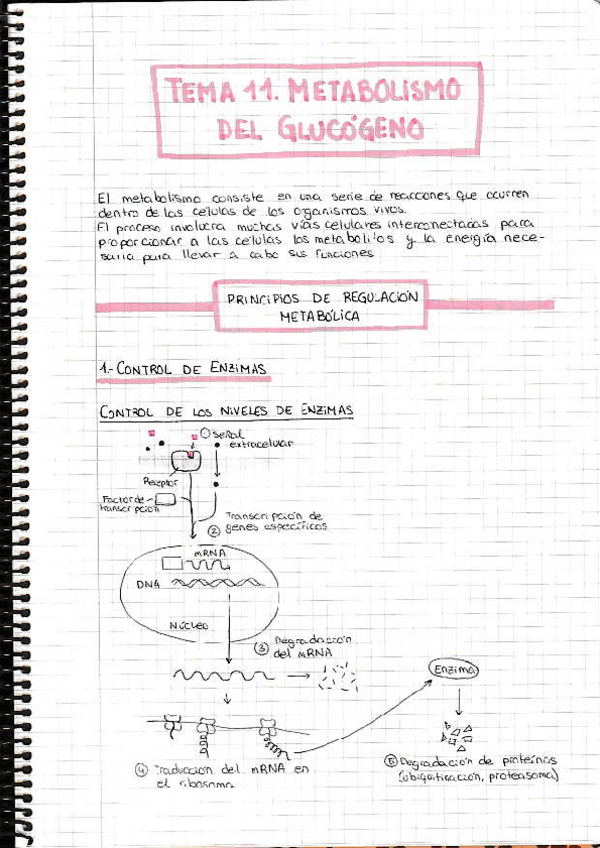 TEMA 11. METABOLISMO
DEL GLUCÓGENO
El metabolismo consiste en una serie de reacciones que ocurren
dentro de las celulas de los organismos vivos.
El proceso involucra muchas vías celulares interconectadas para
proporcionar a las células los metabolitos y la energía nece-
saria para llevar a cabo sus funciones
PRINCIPIOS DE REGULACIÓN
METABÓLICA
1.- CONTROL DE ENZIMAS
CONTROL DE LOS NIVELES DE ENZIMAS
① señal
extracelular
Receptor
Factor de
transcripción
② Transcripción de
genes específicos
mRNA
DNA
NÚCLEO
③ Degradación
del mRNA
Enzima
④ Traducción del mRNA en
el ribosoma
⑤ Degradación de proteínas
(ubiquitinación, proteasoma)